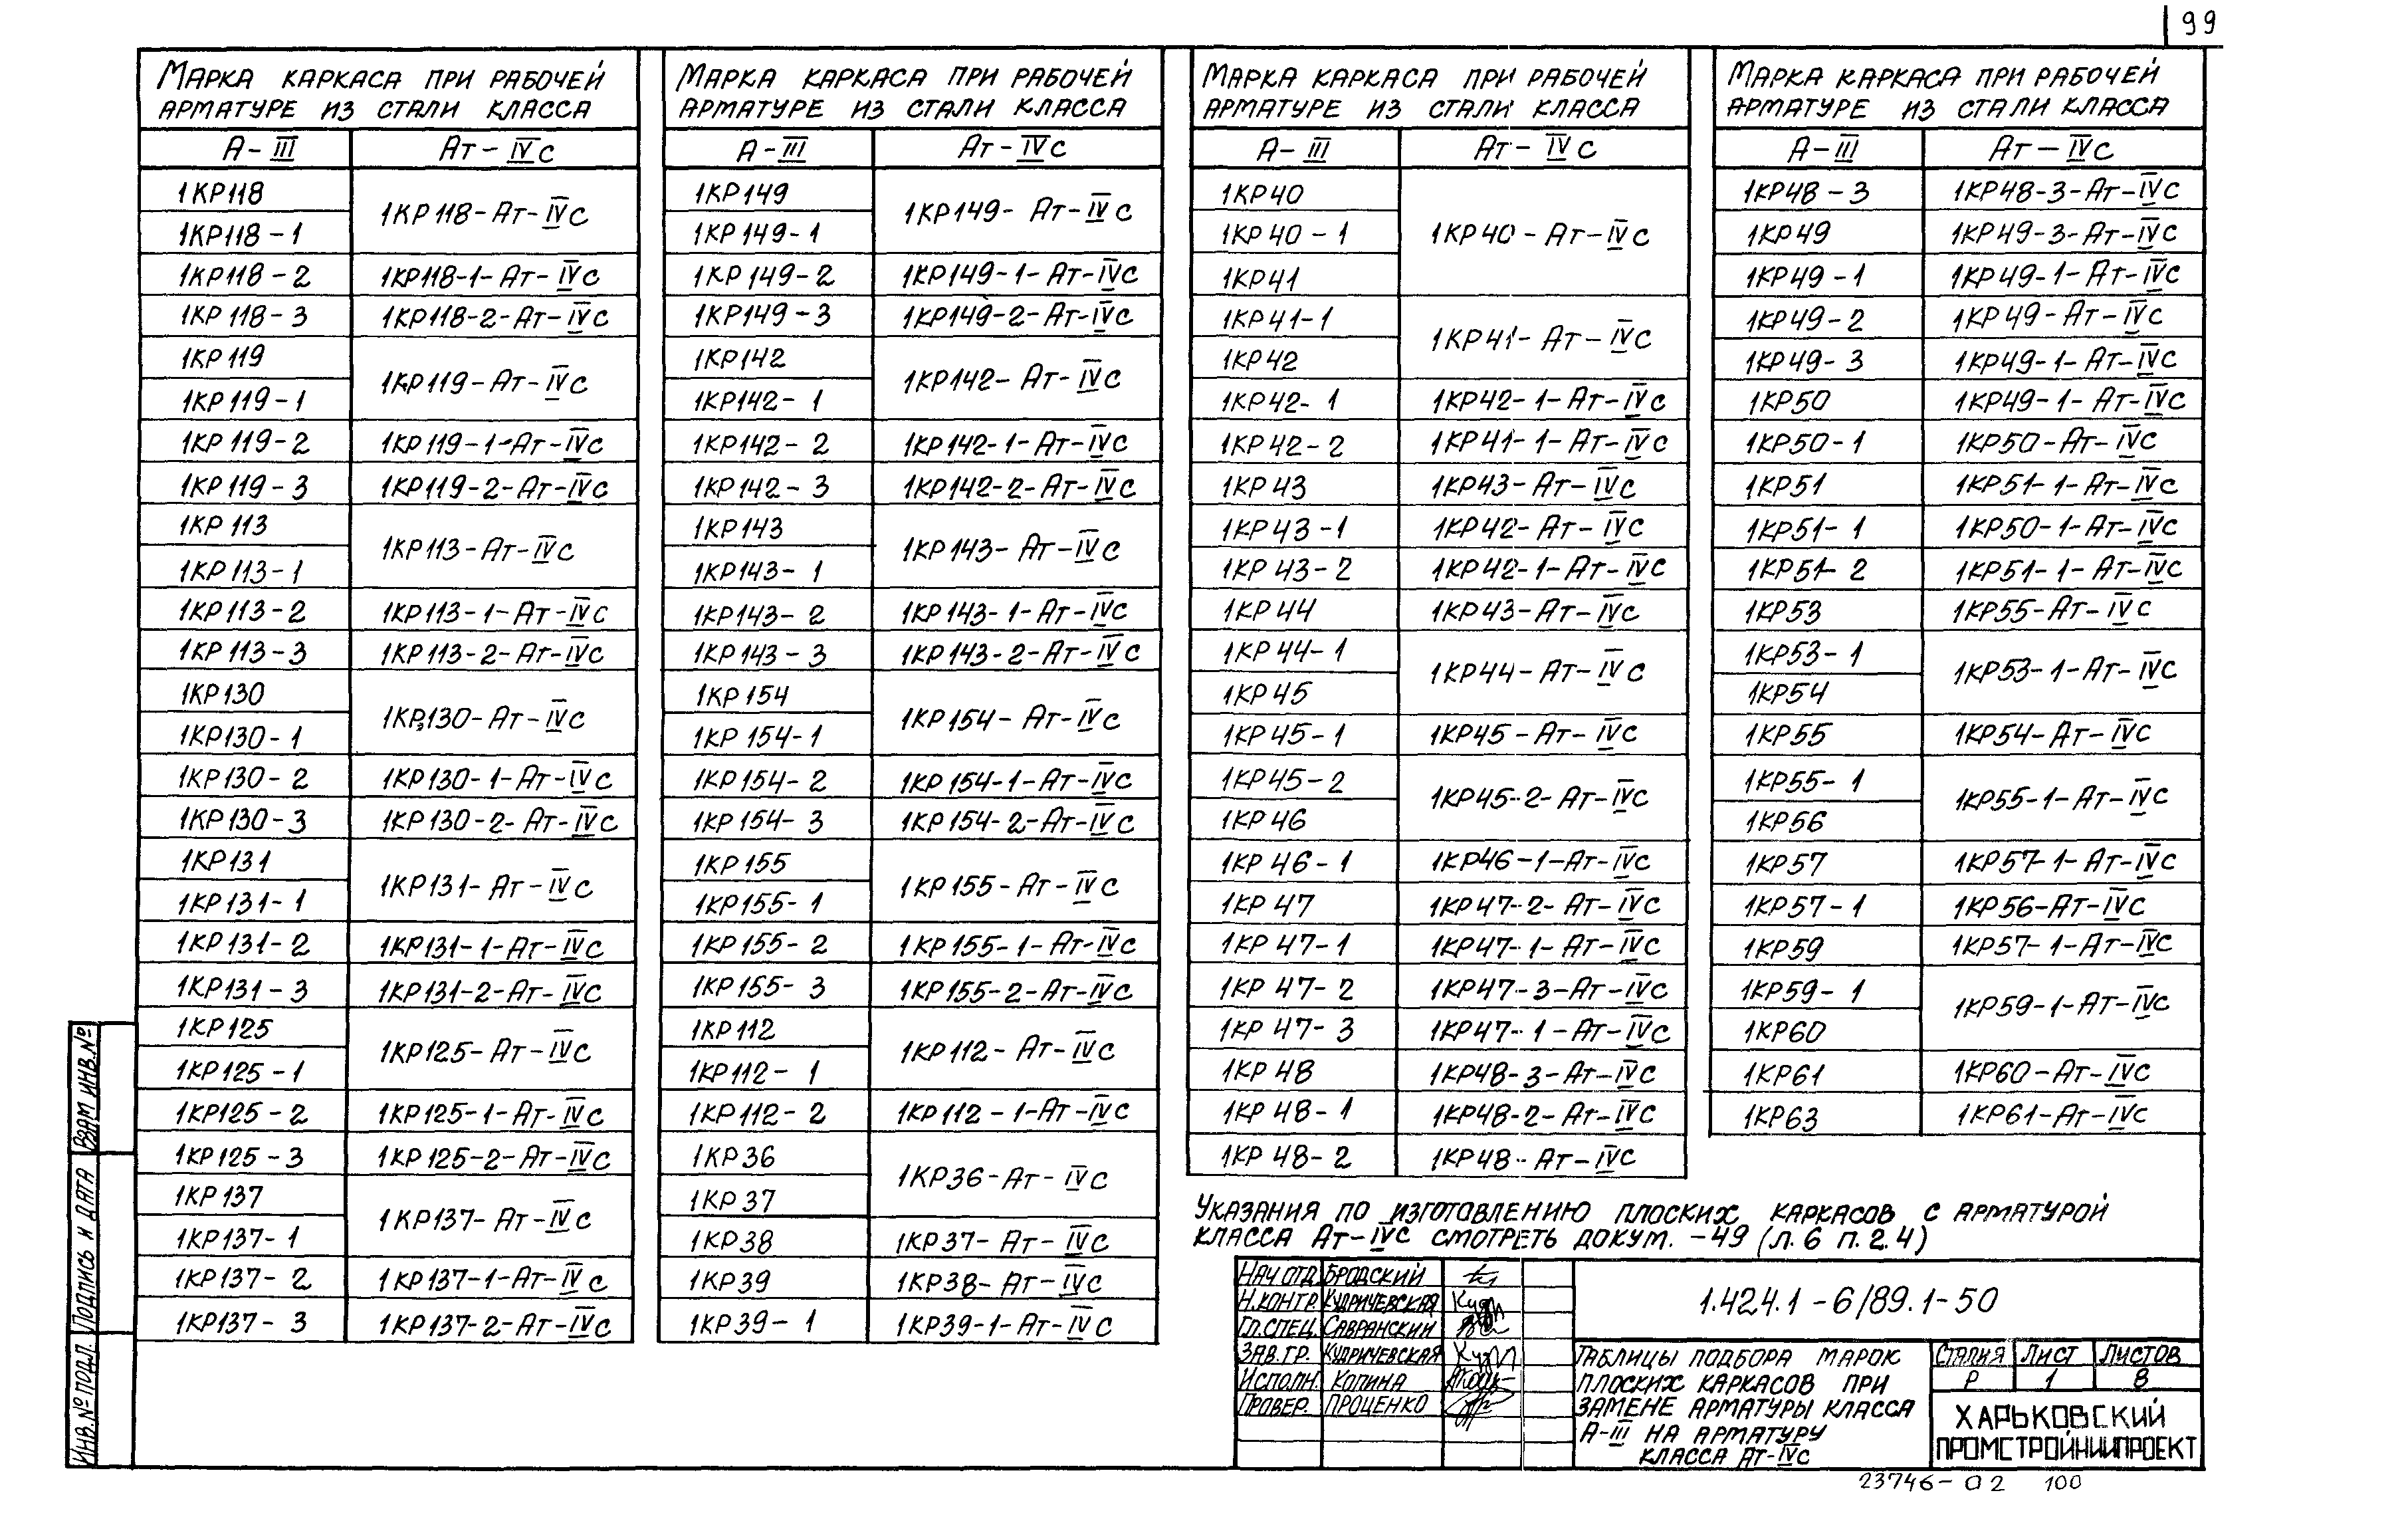 99
Марка каркаса при рабочей
арматуре из стали класса
А-III Ат-IVс
1КР118 1КР118-Ат-IVс
1КР118-1
1КР118-2 1КР118-1-Ат-IVс
1КР118-3 1КР118-2-Ат-IVс
1КР119 1КР119-Ат-IVс
1КР119-1
1КР119-2 1КР119-1-Ат-IVс
1КР119-3 1КР119-2-Ат-IVс
1КР113 1КР113-Ат-IVс
1КР113-1
1КР113-2 1КР113-1-Ат-IVс
1КР113-3 1КР113-2-Ат-IVс
1КР130 1КР130-Ат-IVс
1КР130-1
1КР130-2 1КР130-1-Ат-IVс
1КР130-3 1КР130-2-Ат-IVс
1КР131 1КР131-Ат-IVс
1КР131-1
1КР131-2 1КР131-1-Ат-IVс
1КР131-3 1КР131-2-Ат-IVс
1КР125 1КР125-Ат-IVс
1КР125-1
1КР125-2 1КР125-1-Ат-IVс
1КР125-3 1КР125-2-Ат-IVс
1КР137 1КР137-Ат-IVс
1КР137-1
1КР137-2 1КР137-1-Ат-IVс
1КР137-3 1КР137-2-Ат-IVс
Марка каркаса при рабочей
арматуре из стали класса
А-III Ат-IVс
1КР149 1КР149-Ат-IVс
1КР149-1
1КР149-2 1КР149-1-Ат-IVс
1КР149-3 1КР149-2-Ат-IVс
1КР142 1КР142-Ат-IVс
1КР142-1
1КР142-2 1КР142-1-Ат-IVс
1КР142-3 1КР142-2-Ат-IVс
1КР143 1КР143-Ат-IVс
1КР143-1
1КР143-2 1КР143-1-Ат-IVс
1КР143-3 1КР143-2-Ат-IVс
1КР154 1КР154-Ат-IVс
1КР154-1
1КР154-2 1КР154-1-Ат-IVс
1КР154-3 1КР154-2-Ат-IVс
1КР155 1КР155-Ат-IVс
1КР155-1
1КР155-2 1КР155-1-Ат-IVс
1КР155-3 1КР155-2-Ат-IVс
1КР112 1КР112-Ат-IVс
1КР112-1
1КР112-2 1КР112-1-Ат-IVс
1КР36 1КР36-Ат-IVс
1КР37
1КР38 1КР37-Ат-IVс
1КР39 1КР38-Ат-IVс
1КР39-1 1КР39-1-Ат-IVс
Марка каркаса при рабочей
арматуре из стали класса
А-III Ат-IVс
1КР40 1КР40-Ат-IVс
1КР40-1
1КР41
1КР41-1 1КР41-Ат-IVс
1КР42
1КР42-1 1КР42-1-Ат-IVс
1КР42-2 1КР41-1-Ат-IVс
1КР43 1КР43-Ат-IVс
1КР43-1 1КР42-Ат-IVс
1КР43-2 1КР42-1-Ат-IVс
1КР44 1КР43-Ат-IVс
1КР44-1 1КР44-Ат-IVс
1КР45
1КР45-1 1КР45-Ат-IVс
1КР45-2 1КР45-2-Ат-IVс
1КР46
1КР46-1 1КР46-1-Ат-IVс
1КР47 1КР47-2-Ат-IVс
1КР47-1 1КР47-1-Ат-IVс
1КР47-2 1КР47-3-Ат-IVс
1КР47-3 1КР47-1-Ат-IVс
1КР48 1КР48-3-Ат-IVс
1КР48-1 1КР48-2-Ат-IVс
1КР48-2 1КР48-Ат-IVс
Марка каркаса при рабочей
арматуре из стали класса
А-III Ат-IVс
1КР48-3 1КР48-3-Ат-IVс
1КР49 1КР49-3-Ат-IVс
1КР49-1 1КР49-1-Ат-IVс
1КР49-2 1КР49-Ат-IVс
1КР49-3 1КР49-1-Ат-IVс
1КР50 1КР49-1-Ат-IVс
1КР50-1 1КР50-Ат-IVс
1КР51 1КР51-1-Ат-IVс
1КР51-1 1КР50-1-Ат-IVс
1КР51-2 1КР51-1-Ат-IVс
1КР53 1КР55-Ат-IVс
1КР53-1 1КР53-1-Ат-IVс
1КР54
1КР55 1КР54-Ат-IVс
1КР55-1 1КР55-1-Ат-IVс
1КР56
1КР57 1КР57-1-Ат-IVс
1КР57-1 1КР56-Ат-IVс
1КР59 1КР57-1-Ат-IVс
1КР59-1 1КР59-1-Ат-IVс
1КР60
1КР61 1КР60-Ат-IVс
1КР63 1КР61-Ат-IVс
Указания по изготовлению плоских каркасов с арматурой
класса Ат-IVс смотреть докум. -49 (л. 6 п. 2.4)
Нач отд Бродский
Н.контр. Кудричевская
Гл.спец. Савранский
Зав. гр. Кудричевская
Исполн. Копина
Провер. Проценко
1.424.1-6/89.1-50
Таблицы подбора марок
плоских каркасов при
замене арматуры класса
А-III на арматуру
класса Ат-IVс
Стадия Лист Листов
Р 1 8
Харьковский
Промстройниипроект
Взам инв.№
Подпись и дата
Инв.№ подл.
23746-02 100